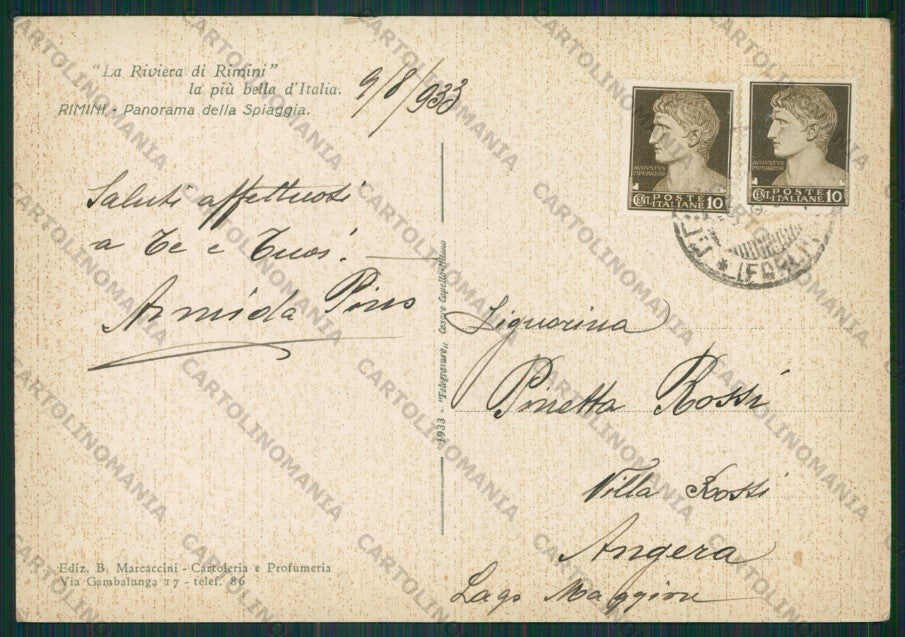 "La Riviera di Rimini"
la più bella d'Italia.
RIMINI - Panorama della Spiaggia.
9/8/933
Saluti affettuosi
a Te e Tuoi.
Armida Pins
AVGVSTVS
IMPERATOR
POSTE
CENT. ITALIANE 10
AVGVSTVS
IMPERATOR
POSTE
CENT. ITALIANE 10
(FORLI)
Signorina
Pinetta Rossi
Villa Rossi
Angera
Lago Maggiore
1933 -
Cesare Capello
Milano
Ediz. B. Marcaccini - Cartoleria e Profumeria
Via Gambalunga 17 - telef. 86
CARTOLINOMANIA